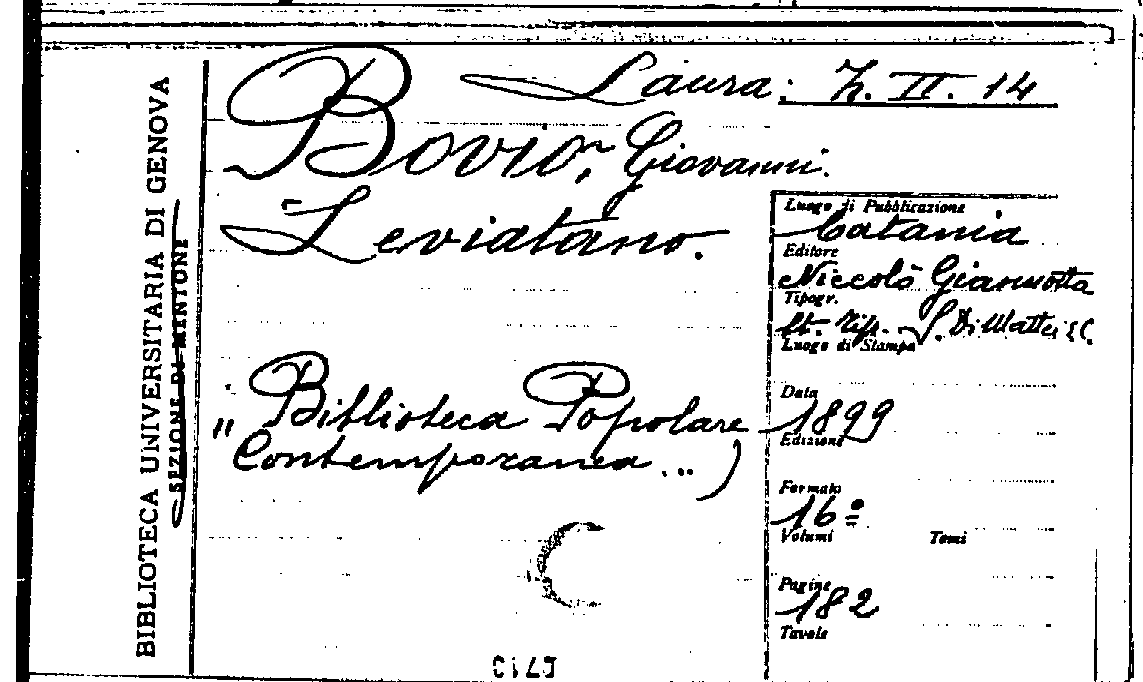 BIBLIOTECA UNIVERSITARIA DI GENOVA
SEZIONE DI MENTONE
Laura: Z. II. 14
Bovio, Giovanni.
Leviatano.
Luogo di Pubblicazione
Catania
Editore
Niccolò Giannotta
Tipogr.
St. Tip. S. Di Mattei & C.
Luogo di Stampa
"Biblioteca Popolare
Contemporanea...)
Data
1899
Edizione
Formato
16º
Volumi Tomi
Pagine
182
Tavole